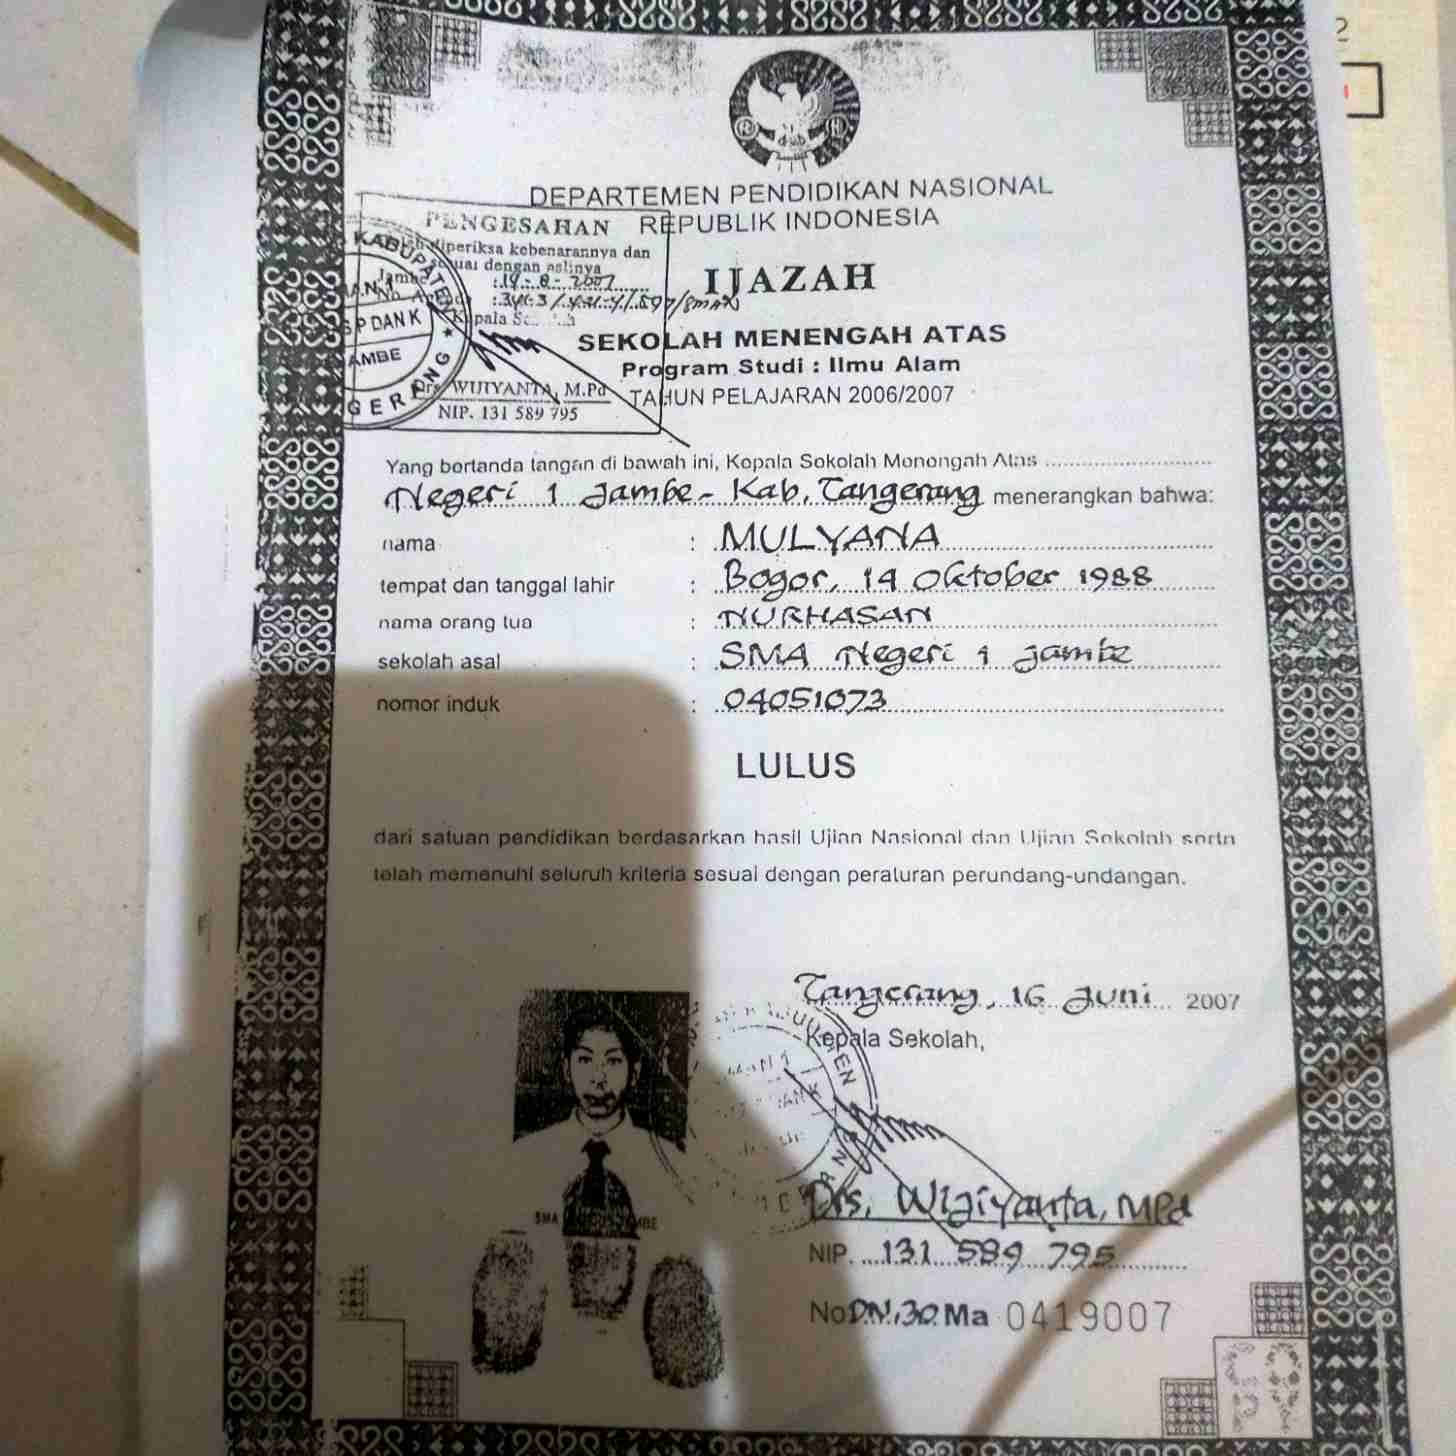 DEPARTEMEN PENDIDIKAN NASIONAL
REPUBLIK INDONESIA
PENGESAHAN
diperiksa kebenarannya dan
sesuai dengan aslinya
KABUPATEN
SP DAN K
JAMBE
GERANG
Drs. WIJIYANTA, M.Pd
NIP. 131 589 795
IJAZAH
SEKOLAH MENENGAH ATAS
Program Studi : Ilmu Alam
TAHUN PELAJARAN 2006/2007
Yang bertanda tangan di bawah ini, Kepala Sekolah Menengah Atas
Negeri 1 Jambe - Kab. Tangerang menerangkan bahwa:
nama : MULYANA
tempat dan tanggal lahir : Bogor, 14 Oktober 1988
nama orang tua : NURHASAN
sekolah asal : SMA Negeri 1 Jambe
nomor induk : 04051073
LULUS
dari satuan pendidikan berdasarkan hasil Ujian Nasional dan Ujian Sekolah serta
telah memenuhi seluruh kriteria sesuai dengan peraturan perundang-undangan.
Tangerang, 16 Juni 2007
Kepala Sekolah,
Drs. Wijiyanta, MPd
NIP. 131 589 795
No DN.30 Ma 0419007